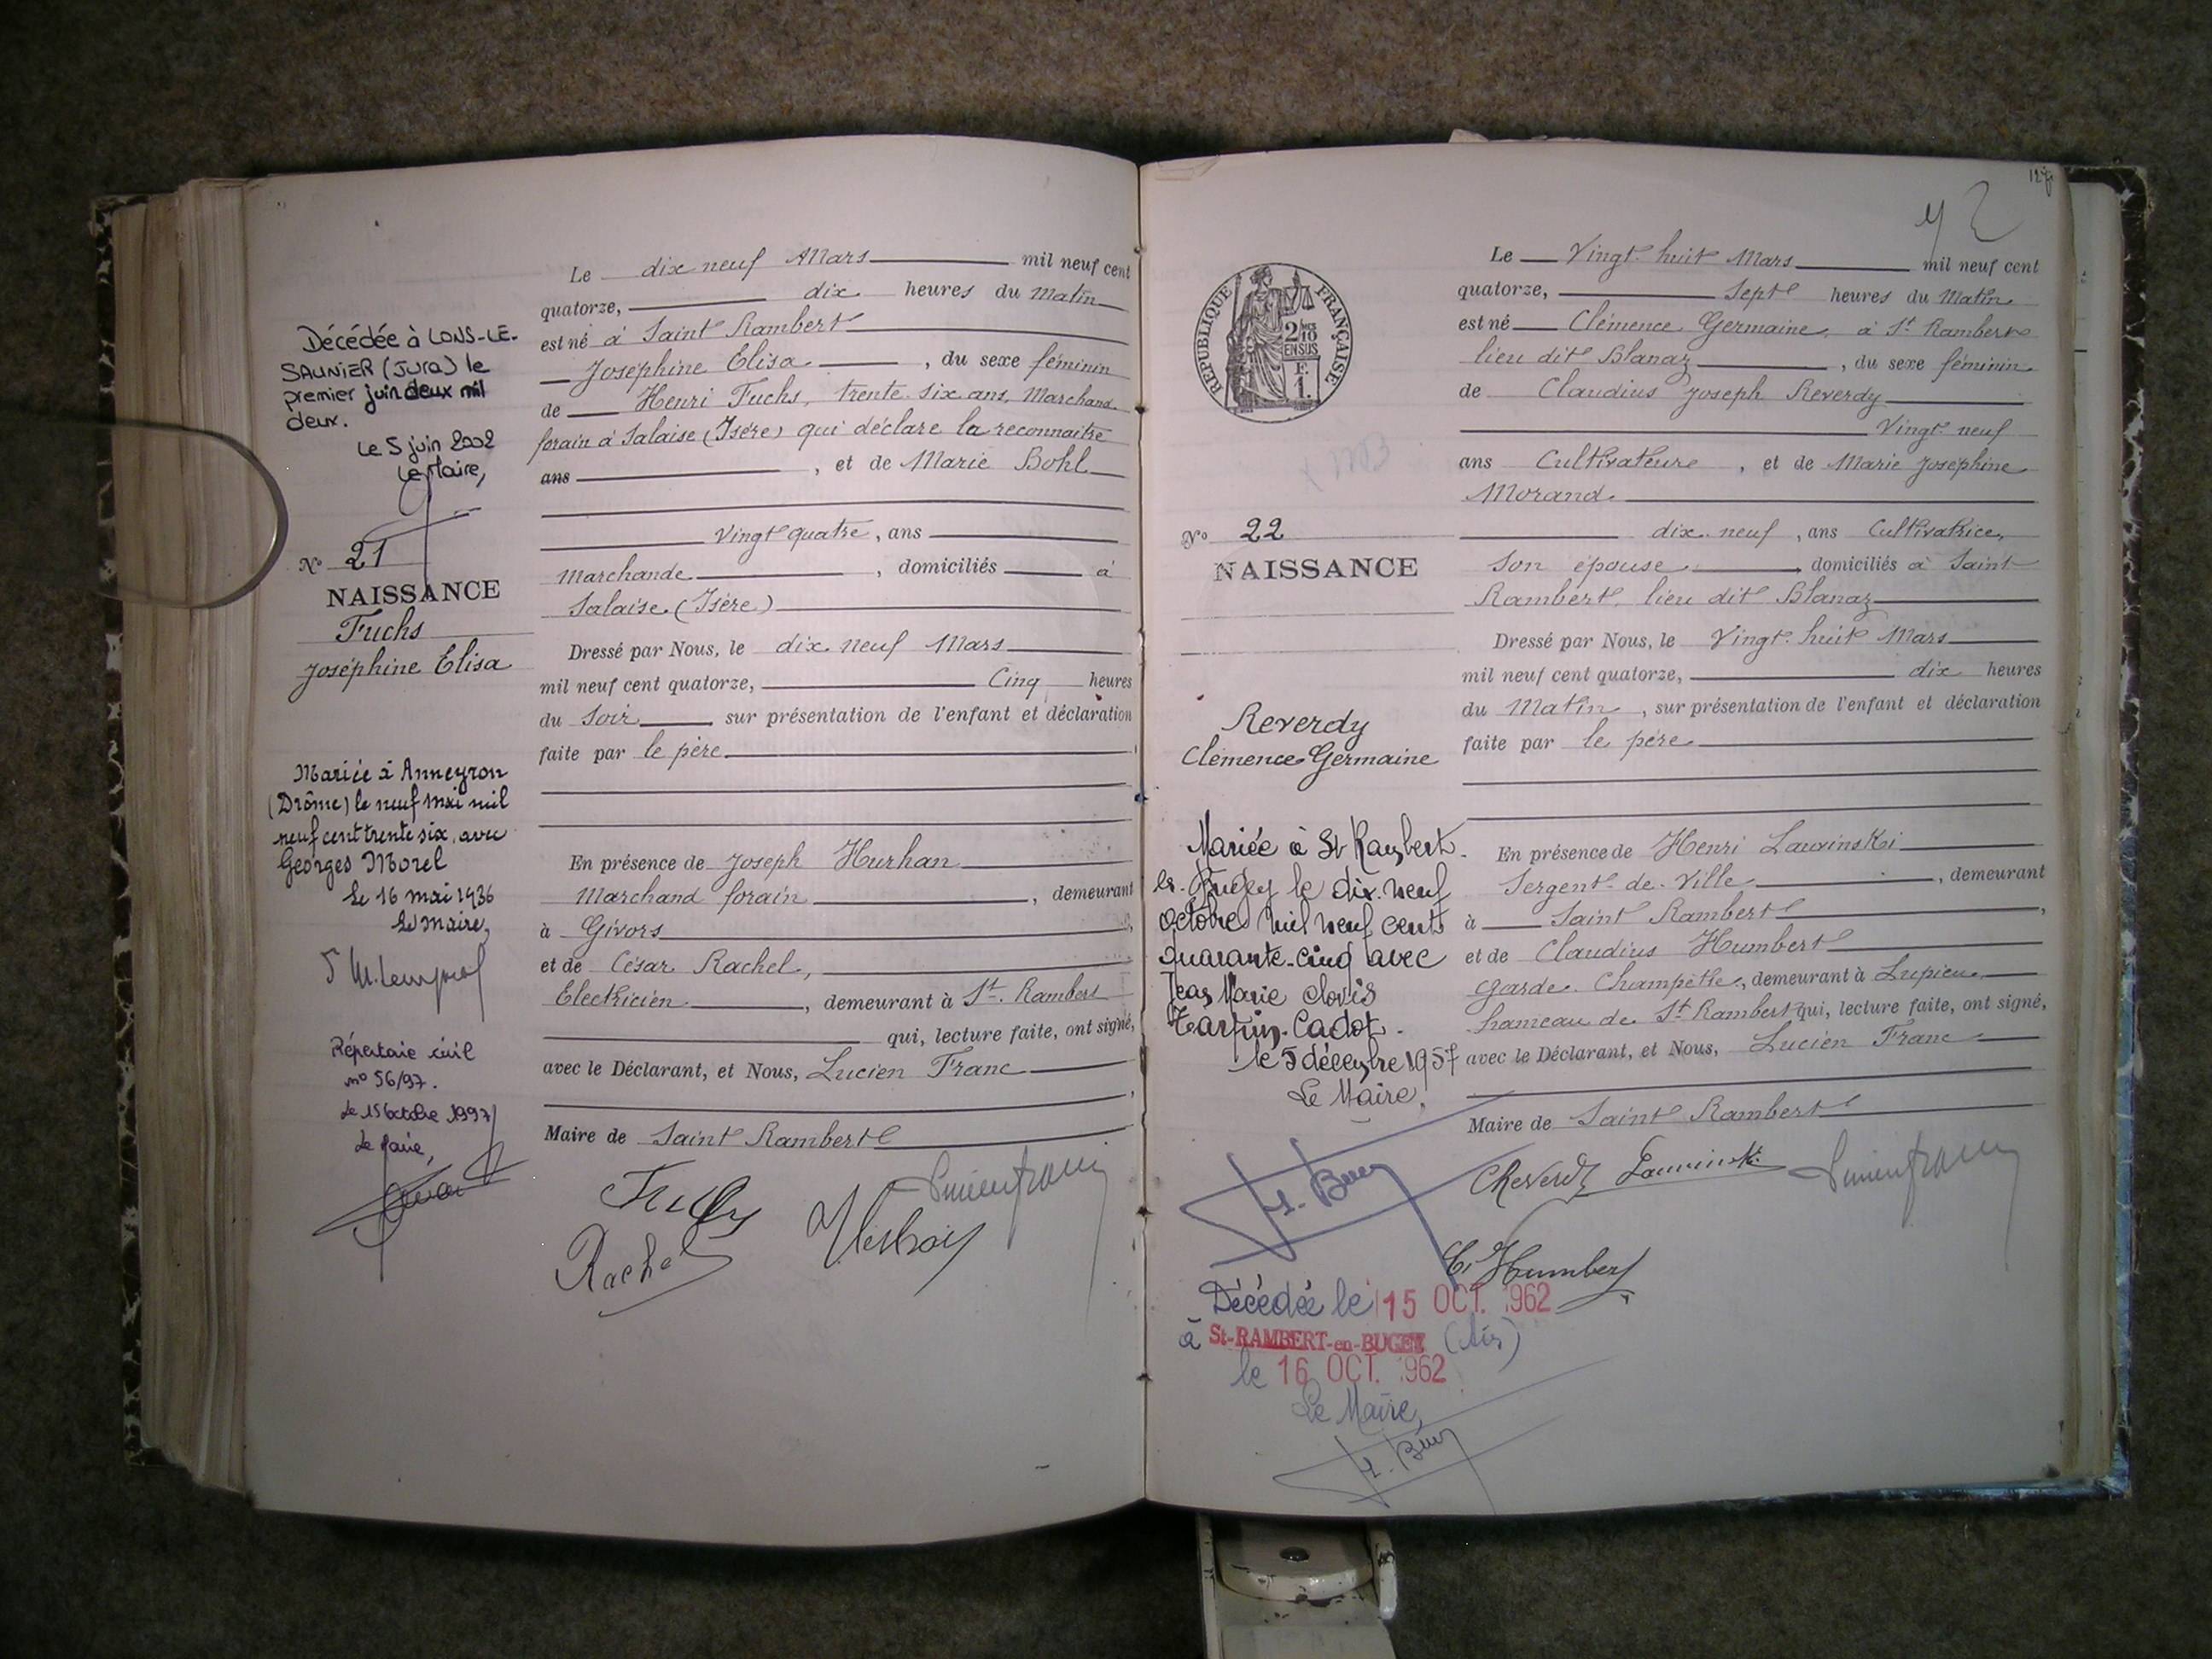 Décédée à LONS-LE-
SAUNIER (Jura) le
premier juin deux mil
deux.
Le 5 juin 2002
Le Maire,
No 21
NAISSANCE
Fuchs
Joséphine Elisa
Mariée à Anneyron
(Drôme) le neuf mai mil
neuf cent trente six, avec
Georges Morel
Le 16 mai 1936
Le Maire,
Répertoire civil
no 56/97.
Le 15 octobre 1997
Le Maire,
Le dix neuf Mars mil neuf cent
quatorze, dix heures du Matin
est né à Saint Rambert
Joséphine Elisa , du sexe féminin
de Henri Fuchs, trente six ans, Marchand
forain à Salaise (Isère) qui déclare la reconnaitre
ans , et de Marie Bohl
Vingt quatre, ans
Marchande , domiciliés à
Salaise (Isère)
Dressé par Nous, le dix neuf Mars
mil neuf cent quatorze, Cinq heures
du Soir , sur présentation de l'enfant et déclaration
faite par le père
En présence de Joseph Hurhan
Marchand forain , demeurant
à Givors ,
et de César Rachel,
Electricien , demeurant à St. Rambert
qui, lecture faite, ont signé,
avec le Déclarant, et Nous, Lucien Franc
,
Maire de Saint Rambert
Rachel
127
RÉPUBLIQUE FRANÇAISE
2/10
EN SUS
F.
1.
No 22
NAISSANCE
Reverdy
Clémence Germaine
Mariée à St Rambert-
en-Bugey le dix-neuf
octobre mil neuf cent
quarante-cinq avec
Jean Marie Clovis
Tarpin-Cadot.
le 5 décembre 1957
Le Maire,
Le Vingt huit Mars mil neuf cent
quatorze, Sept heures du Matin
est né Clémence Germaine, à St Rambert
lieu dit Blanaz , du sexe féminin
de Claudius Joseph Reverdy
Vingt neuf
ans Cultivateur , et de Marie Joséphine
Morand
dix neuf , ans Cultivatrice,
Son épouse , domiciliés à Saint
Rambert, lieu dit Blanaz
Dressé par Nous, le Vingt huit Mars
mil neuf cent quatorze, dix heures
du Matin , sur présentation de l'enfant et déclaration
faite par le père
En présence de Henri Lawinski
Sergent de Ville , demeurant
à Saint Rambert ,
et de Claudius Humbert
Garde Champêtre, demeurant à Lupieu,
hameau de St Rambert qui, lecture faite, ont signé,
avec le Déclarant, et Nous, Lucien Franc
Maire de Saint Rambert
C. Humbert
Décédée le 15 OCT. 1962
à St-RAMBERT-en-BUGEY (Ain)
le 16 OCT. 1962
Le Maire,